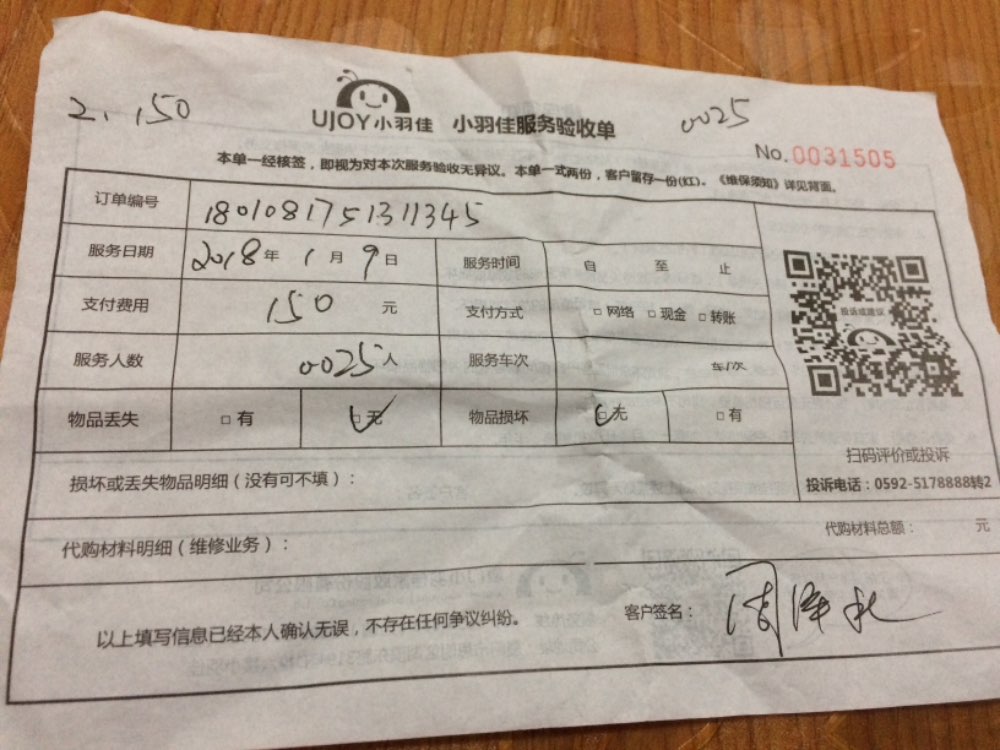 2. 150
0025
UJOY小羽佳 小羽佳服务验收单
No.0031505
本单一经核签，即视为对本次服务验收无异议。本单一式两份，客户留存一份(红)。《维保须知》详见背面。
订单编号 1801081751311345
服务日期 2018年 1月 9日 服务时间 自 至 止
支付费用 150 元 支付方式 □网络 □现金 □转账
投诉或建议
服务人数 0025人 服务车次 车/次
物品丢失 □有 □无 物品损坏 □无 □有
扫码评价或投诉
投诉电话：0592-5178888转2
损坏或丢失物品明细（没有可不填）：
代购材料明细（维修业务）： 代购材料总额： 元
以上填写信息已经本人确认无误，不存在任何争议纠纷。 客户签名：